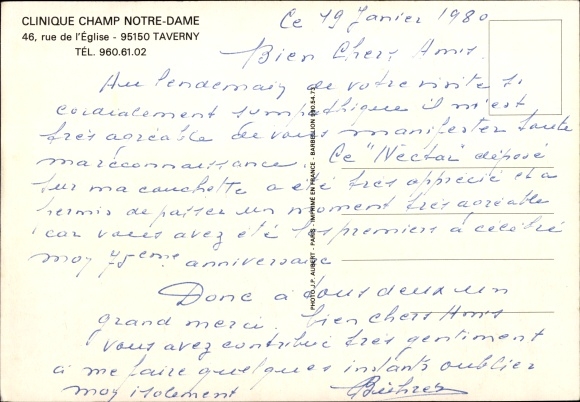 CLINIQUE CHAMP NOTRE-DAME
46, rue de l'Église - 95150 TAVERNY
TÉL. 960.61.02
Ce 19 Janier 1980
Bien Chers Amis.
Au lendemain de votre visite si
cordialement sympathique il m'est
très agréable de vous manifester toute
ma réconnaissance. Ce "Nectar" déposé
sur ma couchette a été très apprécié et a
permis de passer un moment très agréable
car vous avez été les premiers à célébré
moy 75eme anniversaire
Donc à vous deux un
grand merci. bien chers Amis
vous avez contribué très gentiment
à me faire quelques instants oublier
moy isolement
PHOTO J.P. AUBERT - PARIS - IMPRIMÉ EN FRANCE - BARBELION